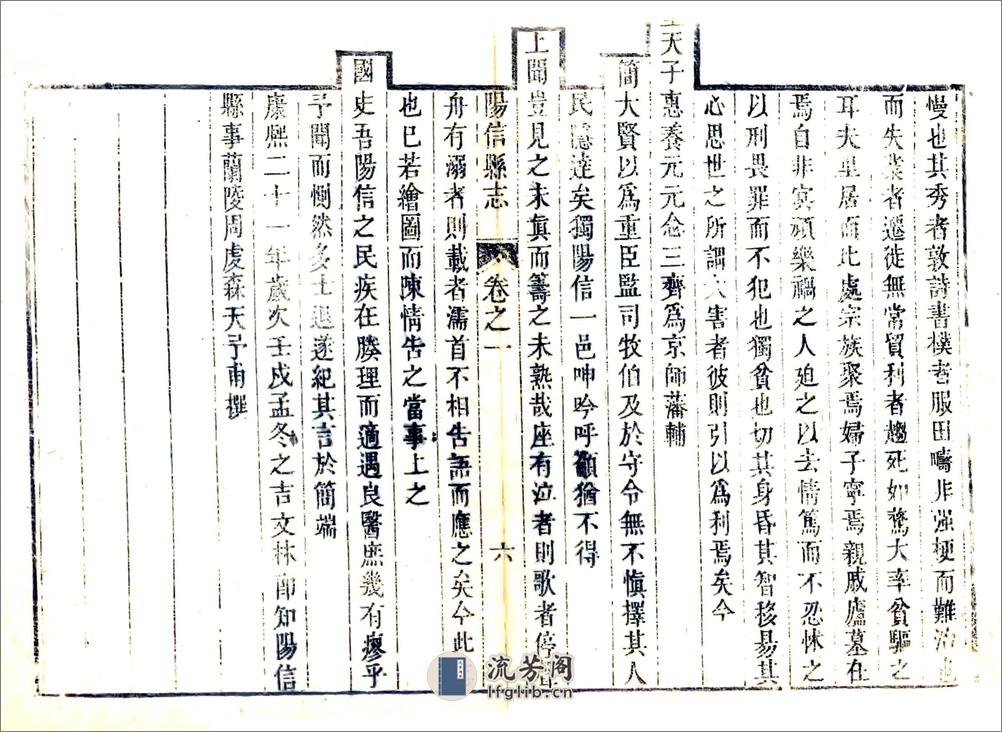 慢也其秀者敦詩書樸者服田疇非强梗而難治也
而失業者遷徙無常貿利者趨死如騖大率貧驅之
耳夫里居而比處宗族聚焉婦子寧焉親戚廬墓在
焉自非冥頑樂禍之人廹之以去情篤而不忍怵之
以刑畏罪而不犯也獨貧也切其身昏其智移易其
心思世之所謂大害者彼則引以爲利焉矣今
天子惠養元元念三齊爲京師藩輔
簡大賢以爲重臣監司牧伯及於守令無不慎擇其人
民隱達矣獨陽信一邑呻吟呼籲猶不得
上聞豈見之未真而籌之未熟哉座有泣者則歌者停
陽信縣志 卷之一 六
舟有溺者則載者濡首不相告語而應之矣今此
也已若繪圖而陳情告之當事上之
國史吾陽信之民疾在腠理而適遇良醫庶幾有瘳乎
予聞而惻然多士退遂紀其言於簡端
康熙二十一年歲次壬戌孟冬之吉文林郎知陽信
縣事蘭陵周虔森天予甫撰
流芳阁
lfglib.cn